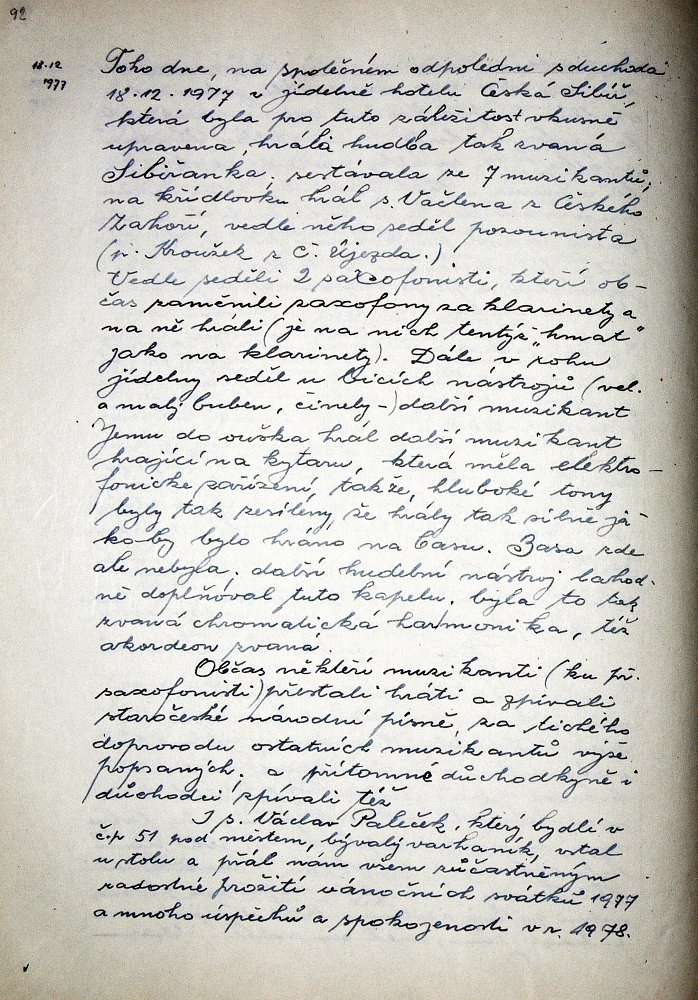 92
18.12
1977
Toho dne, na společném odpoledni s duchodci
18.12.1977 v jídelně hotelu Česká Sibiř,
která byla pro tuto záležitost vkusně
upravena, hrála hudba tak zvaná
Sibiřanka, sestávala ze 7 muzikantů;
na křídlovku hrál s. Vačlena z Českého
Zahoří, vedle něho seděl pozounista
(p. Kroužek z Č. Újezda.)
Vedle seděli 2 saxofonisti, kteří ob-
čas zaměnili saxofony za klarinety a
na ně hráli (je na nich tentýž „hmat"
jako na klarinety). Dále v rohu
jídelny seděl u bicích nástrojů (vel.
a malý buben, činely-) další muzikant
Jemu do ouška hrál další muzikant
hrající na kytaru, která měla elektro-
fonické zařízení, takže, hluboké tony
byly tak zesíleny, že hrály tak silně já-
ko-by bylo hráno na basu. Basa zde
ale nebyla. další hudební nástroj lahod-
ně doplňoval tuto kapelu. byla to tak
zvaná chromatická harmonika, též
akordeon zvaná.
Občas někteří muzikanti (ku př.
saxofonisti) přestali hráti a zpívali
staročeské národní písně, za tichého
doprovodu ostatních muzikantů výše
popsaných, a přítomné důchodkyně i
důchodci zpívali též
I s. Václav Paleček, který bydlí v
č.p 51 pod městem, bývalý varhaník, vstal
u stolu a přál nám všem zůčastněným
radostné prožití vánočních svátků 1977
a mnoho úspěchů a spokojenosti v r. 1978.